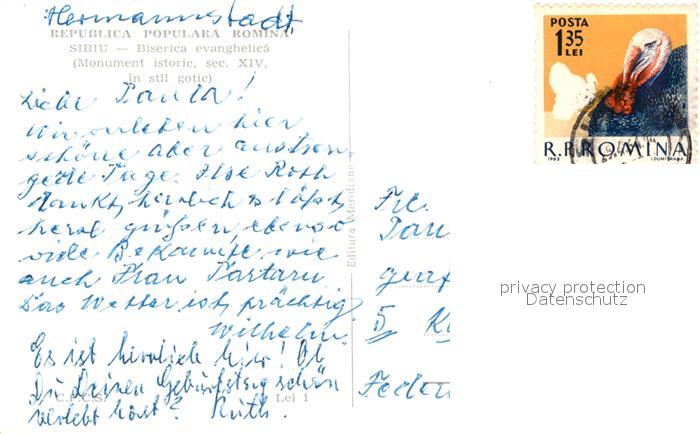 Hermannstadt
REPUBLICA POPULARĂ ROMÎNĂ
SIBIU — Biserica evanghelică
(Monument istoric, sec. XIV,
în stil gotic)
Liebe Paula!
Wir erleben hier
schöne aber anstren
gende Tage. Ilse Roth
dankt herzlich u. läßt
herzl. grüßen, ebenso
viele Bekannte wie
auch Frau
Das Wetter ist prächtig
Wilhelm.
Es ist herrlich hier! Ob
Du Deinen Geburtstag schön
verlebt hast? Ruth.
C.P.C.S. Lei 1
Editura Meridiane
POSTA
1 35
LEI
R.P.ROMINA
1963 I.DUMITRANA
Frl.
Pau
5 K
privacy protection
Datenschutz